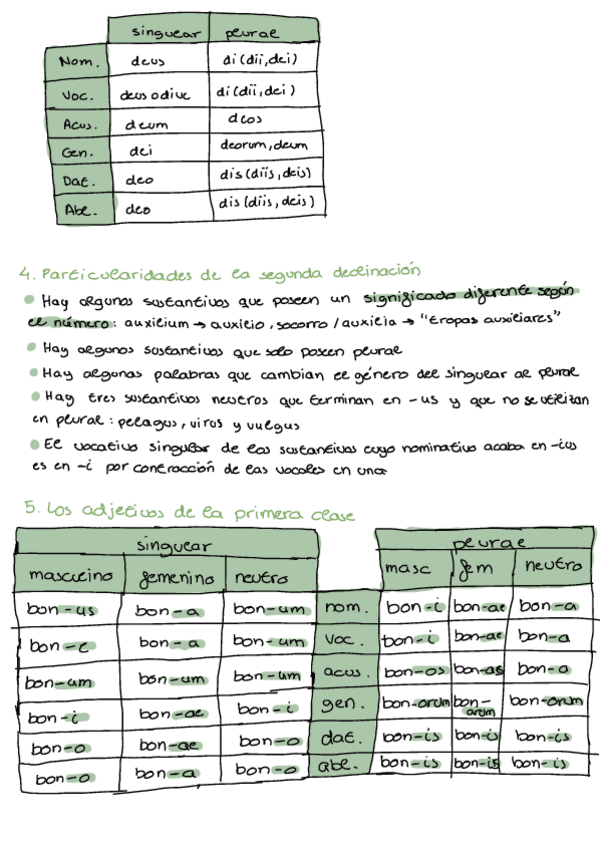 singular plural
Nom. deus di (dii, dei)
Voc. deus o dive di (dii, dei)
Acus. deum deos
Gen. dei deorum, deum
Dat. deo dis (diis, deis)
Abl. deo dis (diis, deis)
4. Particularidades de la segunda declinación
Hay algunos sustantivos que poseen un significado diferente según
el número: auxilium → auxilio, socorro / auxilia → "tropas auxiliares"
Hay algunos sustantivos que solo poseen plural
Hay algunas palabras que cambian el género del singular al plural
Hay tres sustantivos neutros que terminan en -us y que no se utilizan
en plural: pelagus, virus y vulgus
El vocativo singular de los sustantivos cuyo nominativo acaba en -ius
es en -i por contracción de las vocales en una
5. Los adjetivos de la primera clase
singular plural
masculino femenino neutro masc fem neutro
bon-us bon-a bon-um nom. bon-i bon-ae bon-a
bon-e bon-a bon-um voc. bon-i bon-ae bon-a
bon-um bon-um bon-um acus. bon-os bon-as bon-a
bon-i bon-ae bon-i gen. bon-orum bon-arum bon-orum
bon-o bon-ae bon-o dat. bon-is bon-is bon-is
bon-o bon-a bon-o abl. bon-is bon-is bon-is